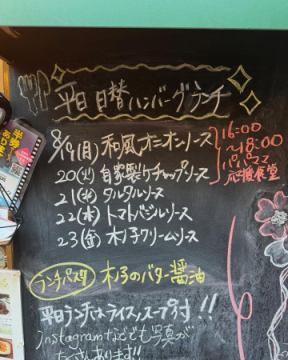 平日 日替ハンバーグランチ
8/19(月) 和風オニオンソース
20(火) 自家製ケチャップソース
21(水) タルタルソース
22(木) トマトバジルソース
23(金) 木ノ子クリームソース
16:00
〜18:00
パパママ
応援食堂
ランチパスタ 木ノ子のバター醤油
平日ランチはライス,スープ付!!
Instagramなどでも写真が
たくさんあります!!